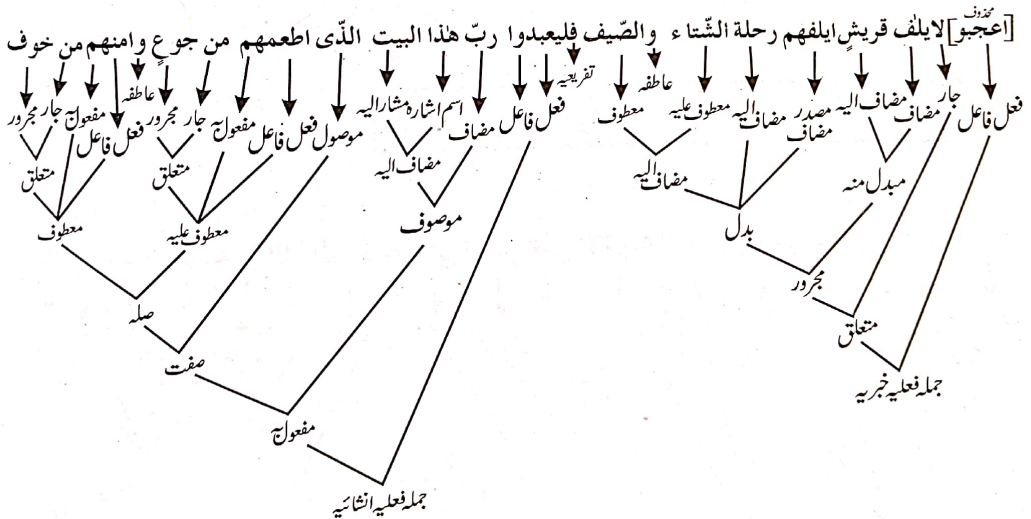 محذوف
[اعجبو] لایلٰف قریشٍ ایلفهم رحلة الشّتاء والصّیف فلیعبدوا ربّ هٰذا البیت الذّی اطعمهم من جوعٍ وامنهم من خوف
فعل فاعل جار مضاف مضاف الیہ مصدر مضاف مضاف الیہ معطوف علیہ عاطفہ معطوف تفریعیہ فعل فاعل مضاف اسم اشارہ مشار الیہ موصول فعل فاعل مفعول بہ جار مجرور عاطفہ فعل فاعل مفعول بہ جار مجرور
مبدل منہ مضاف الیہ مضاف الیہ متعلق متعلق
بدل موصوف معطوف علیہ معطوف
مجرور صلہ
متعلق صفت
جملہ فعلیہ خبریہ
مفعول بہ
جملہ فعلیہ انشائیہ